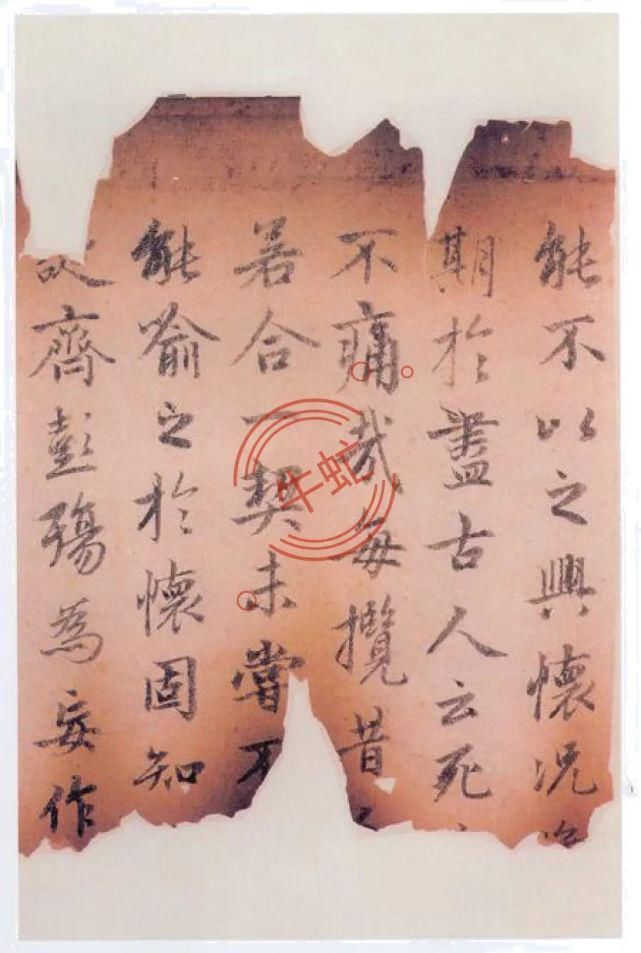 能不以之興懷況
期於盡古人云死
不痛哉每攬昔
若合一契未嘗不
能喻之於懷固知
齊彭殤為妄作
牛虻